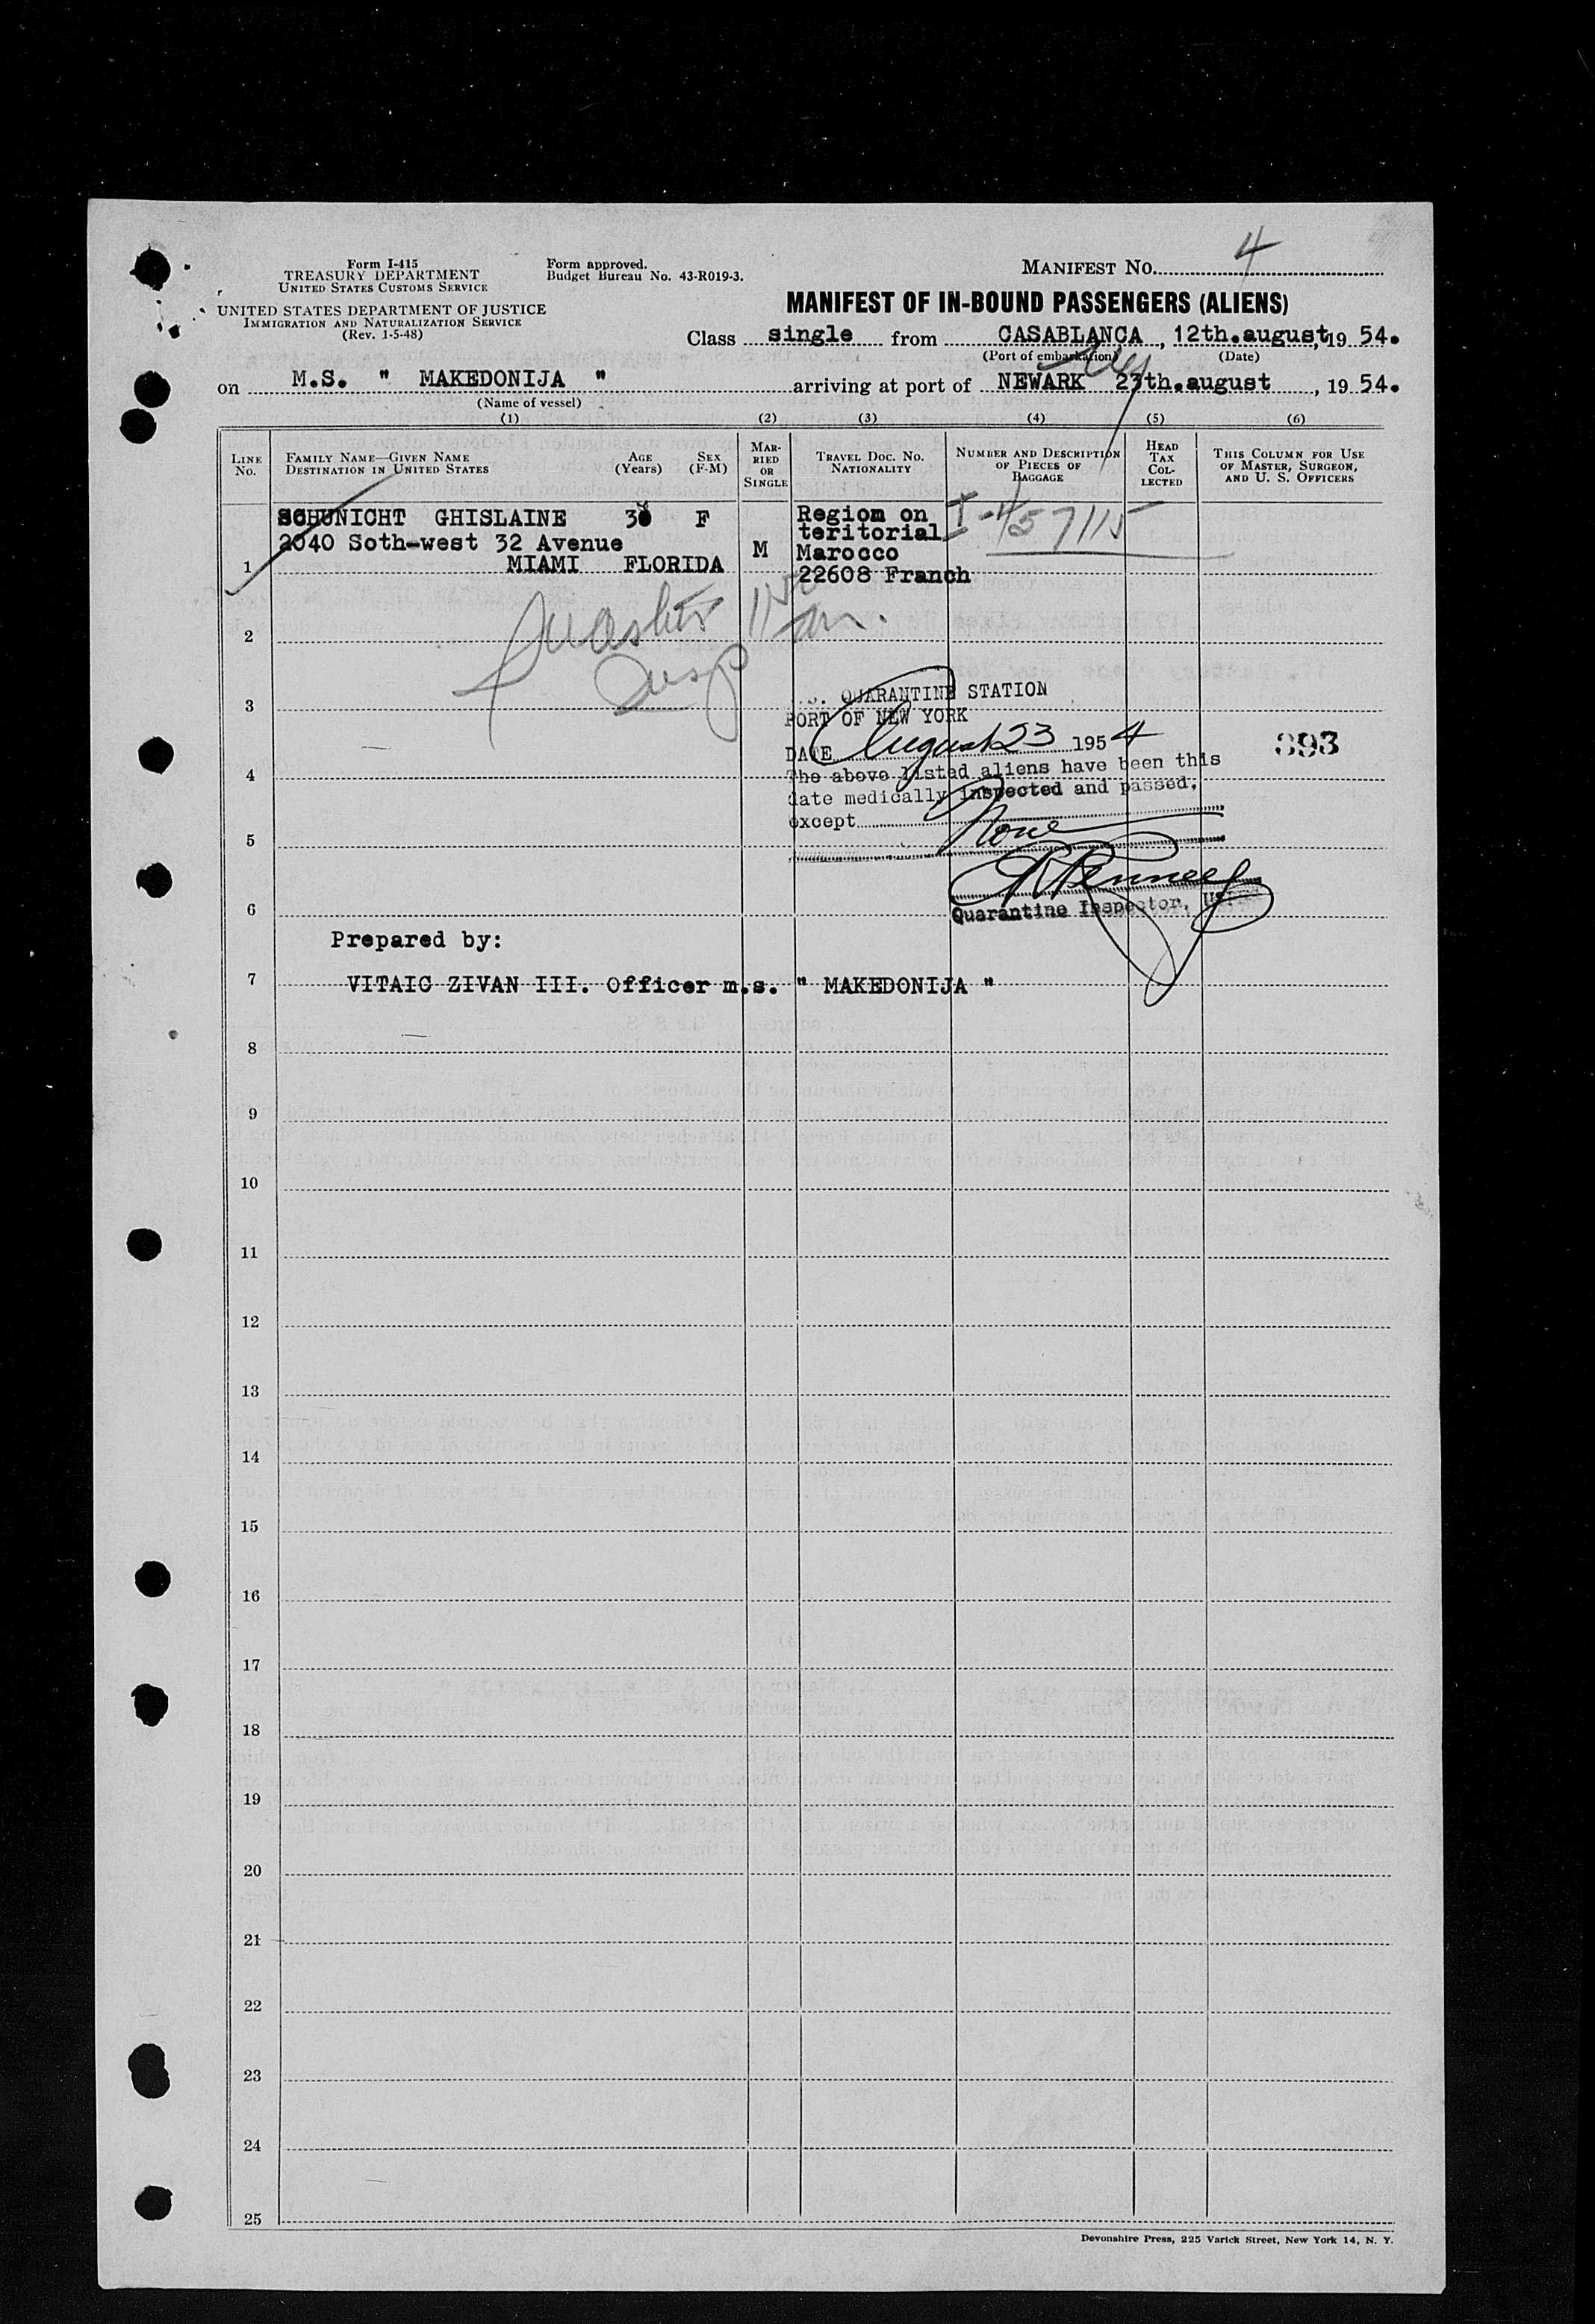 Form I-415
TREASURY DEPARTMENT
UNITED STATES CUSTOMS SERVICE
Form approved.
Budget Bureau No. 43-R019-3.
MANIFEST NO. 4
UNITED STATES DEPARTMENT OF JUSTICE
IMMIGRATION AND NATURALIZATION SERVICE
(Rev. 1-5-48)
MANIFEST OF IN-BOUND PASSENGERS (ALIENS)
Class single from CASABLANCA, 12th.august, 19 54.
(Port of embarkation) (Date)
on M.S. " MAKEDONIJA " arriving at port of NEWARK 23th.august, 19 54.
(Name of vessel)
(1) (2) (3) (4) (5) (6)
LINE NO.
FAMILY NAME—GIVEN NAME
DESTINATION IN UNITED STATES
AGE (Years)
SEX (F-M)
MARRIED OR SINGLE
TRAVEL DOC. NO.
NATIONALITY
NUMBER AND DESCRIPTION OF PIECES OF BAGGAGE
HEAD TAX COLLECTED
THIS COLUMN FOR USE OF MASTER, SURGEON, AND U. S. OFFICERS
SCHUNICHT GHISLAINE F
2040 Soth-west 32 Avenue
1 MIAMI FLORIDA
M
Region on
teritorial
Marocco
22608 Franch
2
3
U.S. QUARANTINE STATION
PORT OF NEW YORK
DATE August 23 1954
393
4
The above listed aliens have been this
date medically inspected and passed,
except None
5
6
Quarantine Inspector,
Prepared by:
7 VITAIC ZIVAN III. Officer m.s. " MAKEDONIJA "
8
9
10
11
12
13
14
15
16
17
18
19
20
21
22
23
24
25
Devonshire Press, 225 Varick Street, New York 14, N. Y.